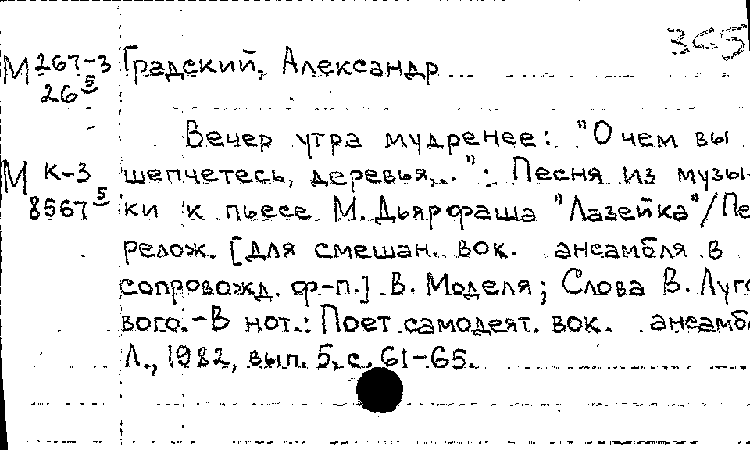 365
М 267-3 Градский, Александр
26 5
Вечер утра мудренее: "О чем вы
М К-3 шепчетесь, деревья...": Песня из музы-
8567 5 ки к пьесе М. Дьярфаша "Лазейка"/Пе
релож. [для смешан. вок. ансамбля в
сопровожд. ф-п.] В. Моделя; Слова В. Луго
вого.-В нот.: Поет самодеят. вок. ансамб
Л., 1982, вып. 5, с. 61-65.